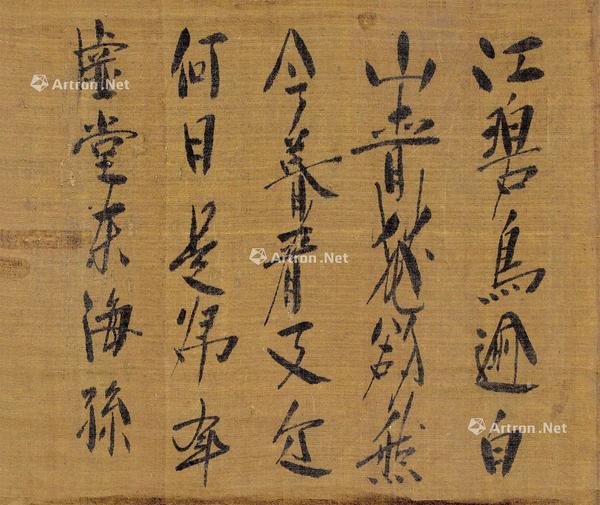 江碧鳥逾白
山青花欲然
今春看又過
何日是歸年
虛堂東海孫
Artron.Net
Artron.Net
Artron.Net
Artron.Net